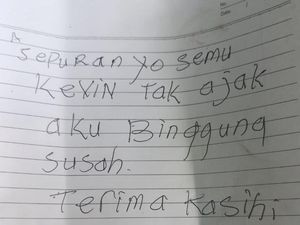 No.
Date
sepuran yo semu
Kevin Tak ajak
aku Binggung
susah.
Terima Kasihi